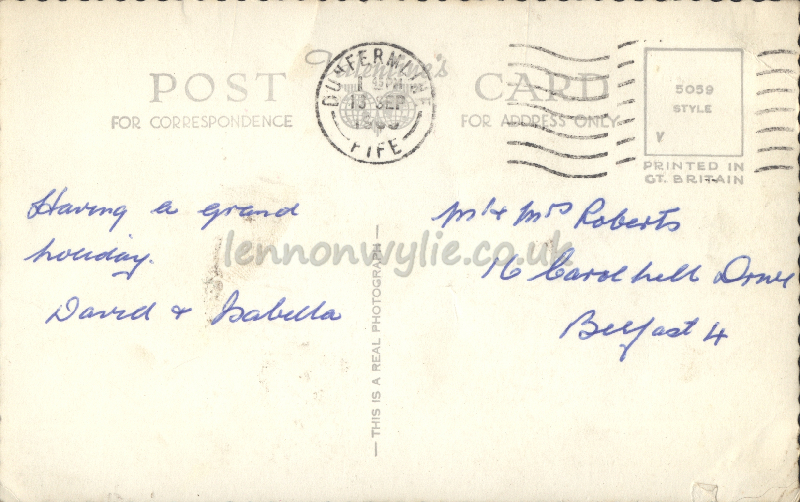 Valentine's
POST CARD
FOR CORRESPONDENCE
FOR ADDRESS ONLY
DUNFERMLINE
13 SEP
FIFE
5059
STYLE
V
PRINTED IN
GT. BRITAIN
Having a grand
holiday.
David & Isabella
— THIS IS A REAL PHOTOGRAPH —
Mr & Mrs Roberts
16 Carolhill Drive
Belfast 4
lennonwylie.co.uk